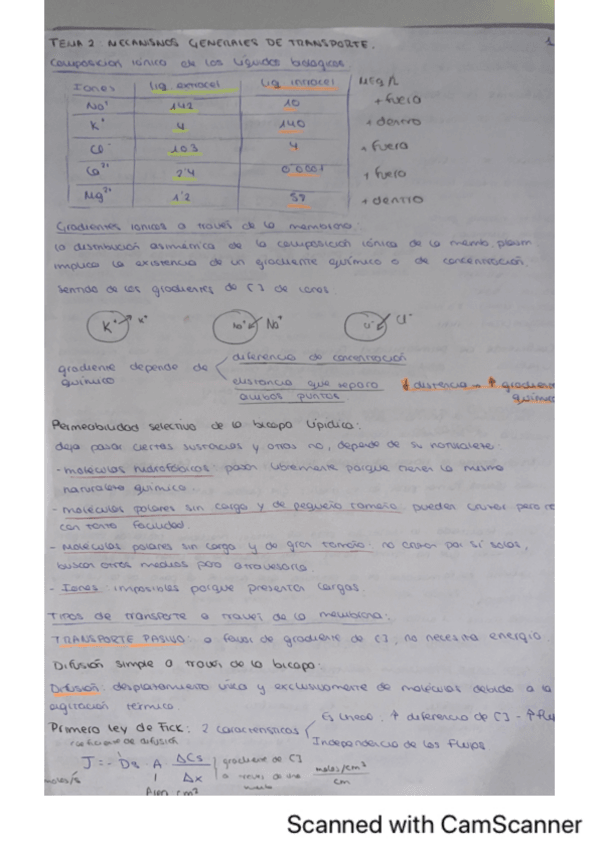 TEMA 2 MECANISMOS GENERALES DE TRANSPORTE. 1
Composición iónica de los líquidos biológicos
Iones liq extracel liq intracel Meq/L
Na⁺ 142 10 + fuera
K⁺ 4 140 + dentro
Cl⁻ 103 4 + fuera
Ca²⁺ 2'4 0'0001 + fuera
Mg²⁺ 1'2 58 + dentro
Gradientes iónicos a través de la membrana:
la distribución asimétrica de la composición iónica de la memb. plasm
implica la existencia de un gradiente químico o de concentración.
Sentido de los gradientes de [] de iones.
K⁺ K⁺ Na⁺ Na⁺ Cl⁻ Cl⁻
gradiente químico depende de
diferencia de concentración
distancia que separa ambos puntos ↓ distancia → ↑ gradiente químico
Permeabilidad selectiva de la bicapa lipídica:
deja pasar ciertas sustancias y otras no, depende de su naturaleza:
- moléculas hidrofóbicas: pasan libremente porque tienen la misma
naturaleza química.
- moléculas polares sin carga y de pequeño tamaño: pueden cruzar pero
con tanta facilidad.
- Moléculas polares sin carga y de gran tamaño: no cruzan por sí solas,
buscan otros medios para atravesarla.
- Iones: imposibles porque presentan cargas.
Tipos de transporte a través de la membrana:
TRANSPORTE PASIVO: a favor de gradiente de [], no necesita energía.
Difusión simple a través de la bicapa:
Difusión: desplazamiento única y exclusivamente de moléculas debido a la
agitación térmica.
Primera ley de Fick: 2 características
Es lineal: ↑ diferencia de [] - ↑ flu
Independencia de los flujos
coeficiente de difusión
J = - Ds A ΔCs / Δx gradiente de [] a través de una moles/cm³ / cm
moles/s
Área cm²
Scanned with CamScanner